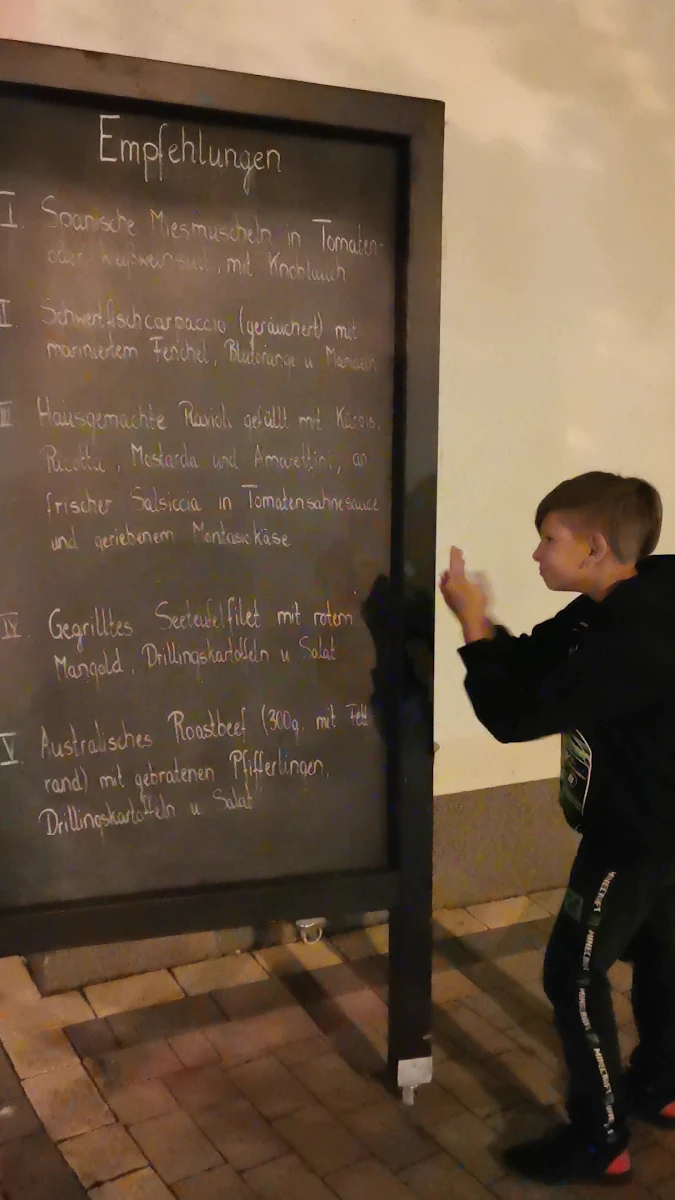 Empfehlungen
I. Spanische Miesmuscheln in Tomaten-
oder Weißweinsud, mit Knoblauch
II. Schwertfischcarpaccio (geräuchert) mit
mariniertem Fenchel, Blutorange u Mandeln
III Hausgemachte Ravioli gefüllt mit Kürbis,
Ricotta, Mostarda und Amarettini, an
frischer Salsiccia in Tomatensahnesauce
und geriebenem Montasiokäse
IV. Gegrilltes Seeteufelfilet mit rotem
Mangold, Drillingskartoffeln u Salat
V. Australisches Roastbeef (300g. mit Fett
rand) mit gebratenen Pfifferlingen,
Drillingskartoffeln u Salat
MINECRAFT
MINECRAFT
MINECRAFT
MINECRAFT